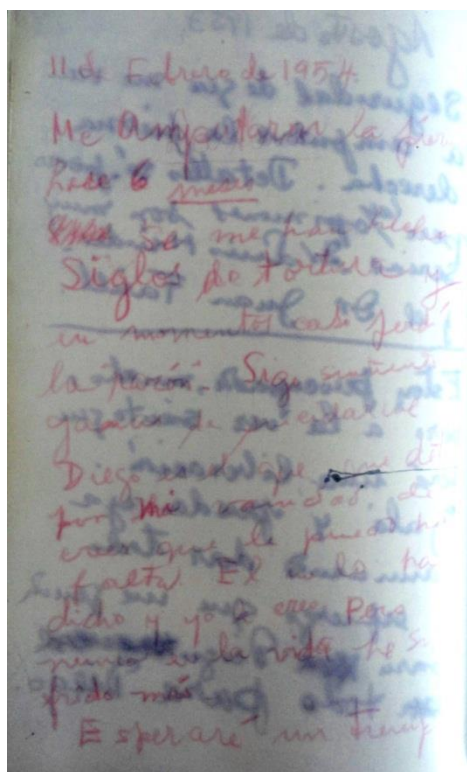 11 de Febrero de 1954.
Me Amputaron la pier
hace 6 meses
Se me han hecho
Siglos de tortura y
en momentos casi perdí
la razón. Sigo sintiendo
ganas de suicidarme
Diego es el que me de
por mi vanidad de
creer que le puedo hacer
falta. El me lo ha
dicho y yo lo creo. Pero
nunca en la vida he su
frido más
Esperaré un tiemp